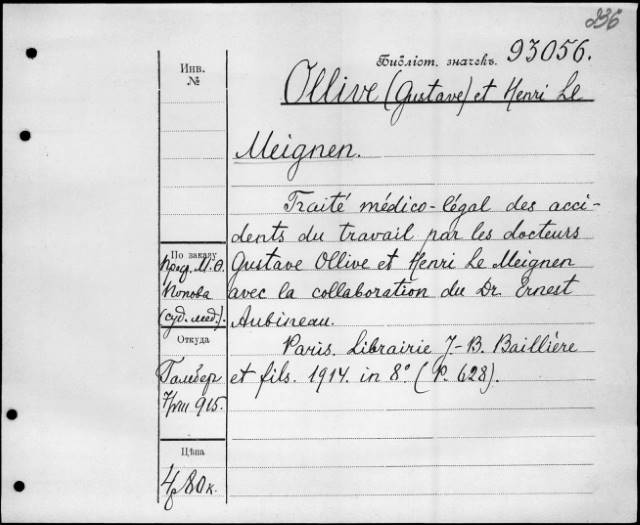 236
Библіот. значекъ 93056.
Инв.
№
Ollive (Gustave) et Henri Le
Meignen.
Traité médico-légal des acci-
dents du travail par les docteurs
Gustave Ollive et Henri Le Meignen
avec la collaboration du Dr. Ernest
Aubineau.
Paris. Librairie J.-B. Baillière
et fils. 1914. in 8° (P. 628).
По заказу
Проф. М.Ѳ.
Попова
(суд. мед.).
Откуда
Гальбер
7/VIII 915.
Цѣна
4р 80к.